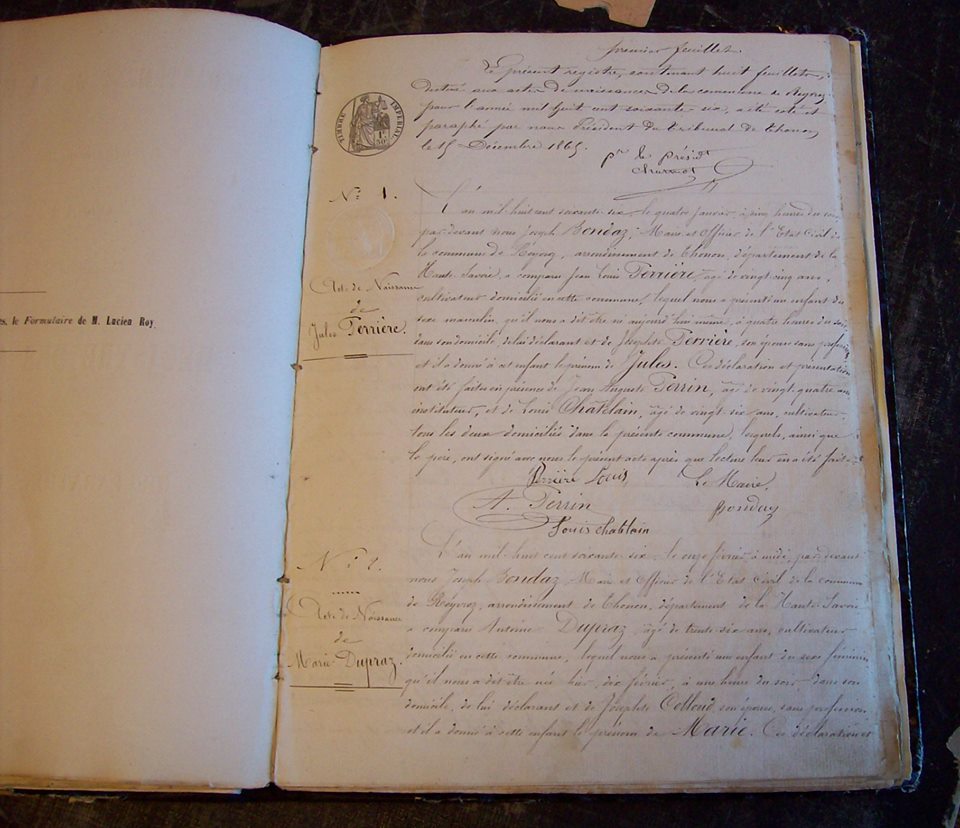 es, le Formulaire de M. Lucien Roy.
premier feuillet.
Le présent registre, contenant huit feuillets,
destiné aux actes de naissances de la commune de Reyvroz
pour l'année mil huit cent soixante six, a été coté et
paraphé par nous Président du tribunal de Thonon,
le 15 Décembre 1865.
pr le présidt
TIMBRE IMPERIAL
1F 50C
N° 1.
Acte de Naissance
de
Jules Perrière.
L'an mil huit cent soixante six le quatre janvier, à cinq heures du soir,
par devant nous Joseph Bondaz, Maire et Officier de l'Etat Civil de
la commune de Reyvroz, arrondissement de Thonon, département de la
Haute Savoie, a comparu Jean Louis Perrière, âgé de vingt cinq ans,
cultivateur domicilié en cette commune, lequel nous a présenté un enfant du
sexe masculin, qu'il nous a dit être né aujourd'hui même, à quatre heures du soir,
dans son domicile, de lui déclarant et de Josephte Perrière, son épouse sans profession
et il a donné à cet enfant le prénom de Jules. Ces déclaration et présentation
ont été faites en présence de Jean Auguste Perrin, âgé de vingt quatre ans,
instituteur, et de Louis Chatelain, âgé de vingt six ans, cultivateur,
tous les deux domiciliés dans la présente commune, lesquels, ainsi que
le père, ont signé avec nous le présent acte après que lecture leur en a été faite
Perrière Louis Le Maire,
A. Perrin Bondaz
Louis Chatelain
N° 2.
Acte de Naissance
de
Marie Dupraz.
L'an mil huit cent soixante six le onze février à midi, par devant
nous Joseph Bondaz, Maire et Officier de l'Etat Civil de la commune
de Reyvroz, arrondissement de Thonon, département de la Haute Savoie
a comparu Antoine Dupraz âgé de trente six ans, cultivateur
domicilié en cette commune, lequel nous a présenté un enfant du sexe féminin
qu'il nous a dit être née hier, dix février, à une heure du soir dans son
domicile, de lui déclarant et de Josephte Colloud son épouse, sans profession
et il a donné à cette enfant le prénom de Marie. Ces déclaration et